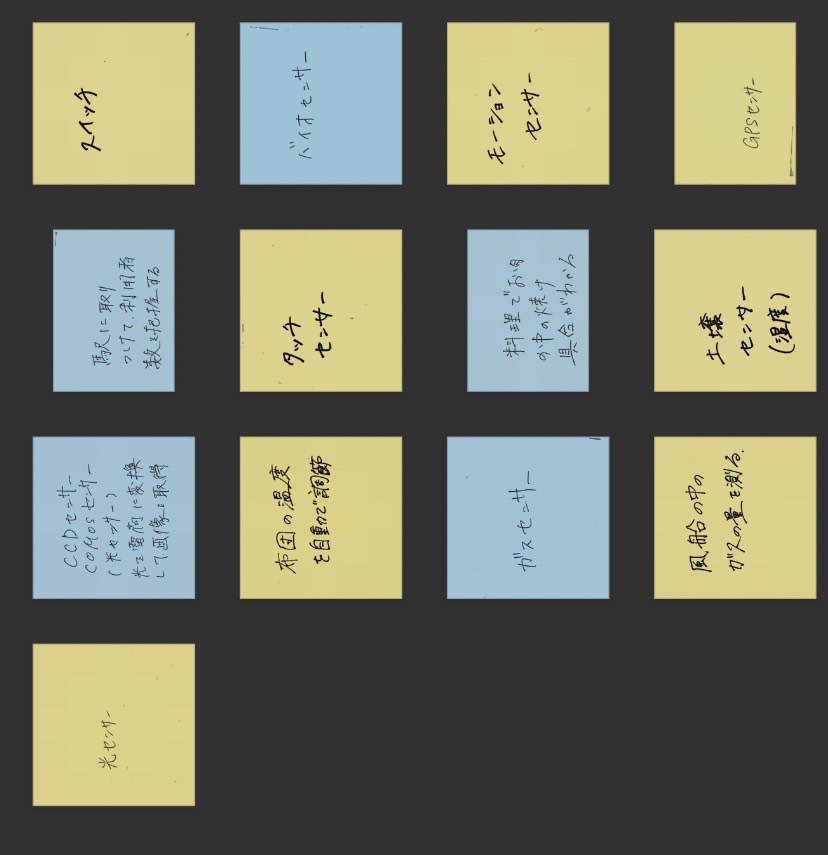 光センサー
CCDセンサー
COMOSセンサー
(光センサー)
光を電荷に変換
して画像を取得
駅に取り
つけて、利用者
数を把握する
スイッチ
布団の温度
を自動で調節
タッチ
センサー
バイオセンサー
ガスセンサー
料理でお肉
の中の焼け
具合がわかる
モーション
センサー
風船の中の
ガスの量を測る.
土壌
センサー
(湿度)
GPSセンサー